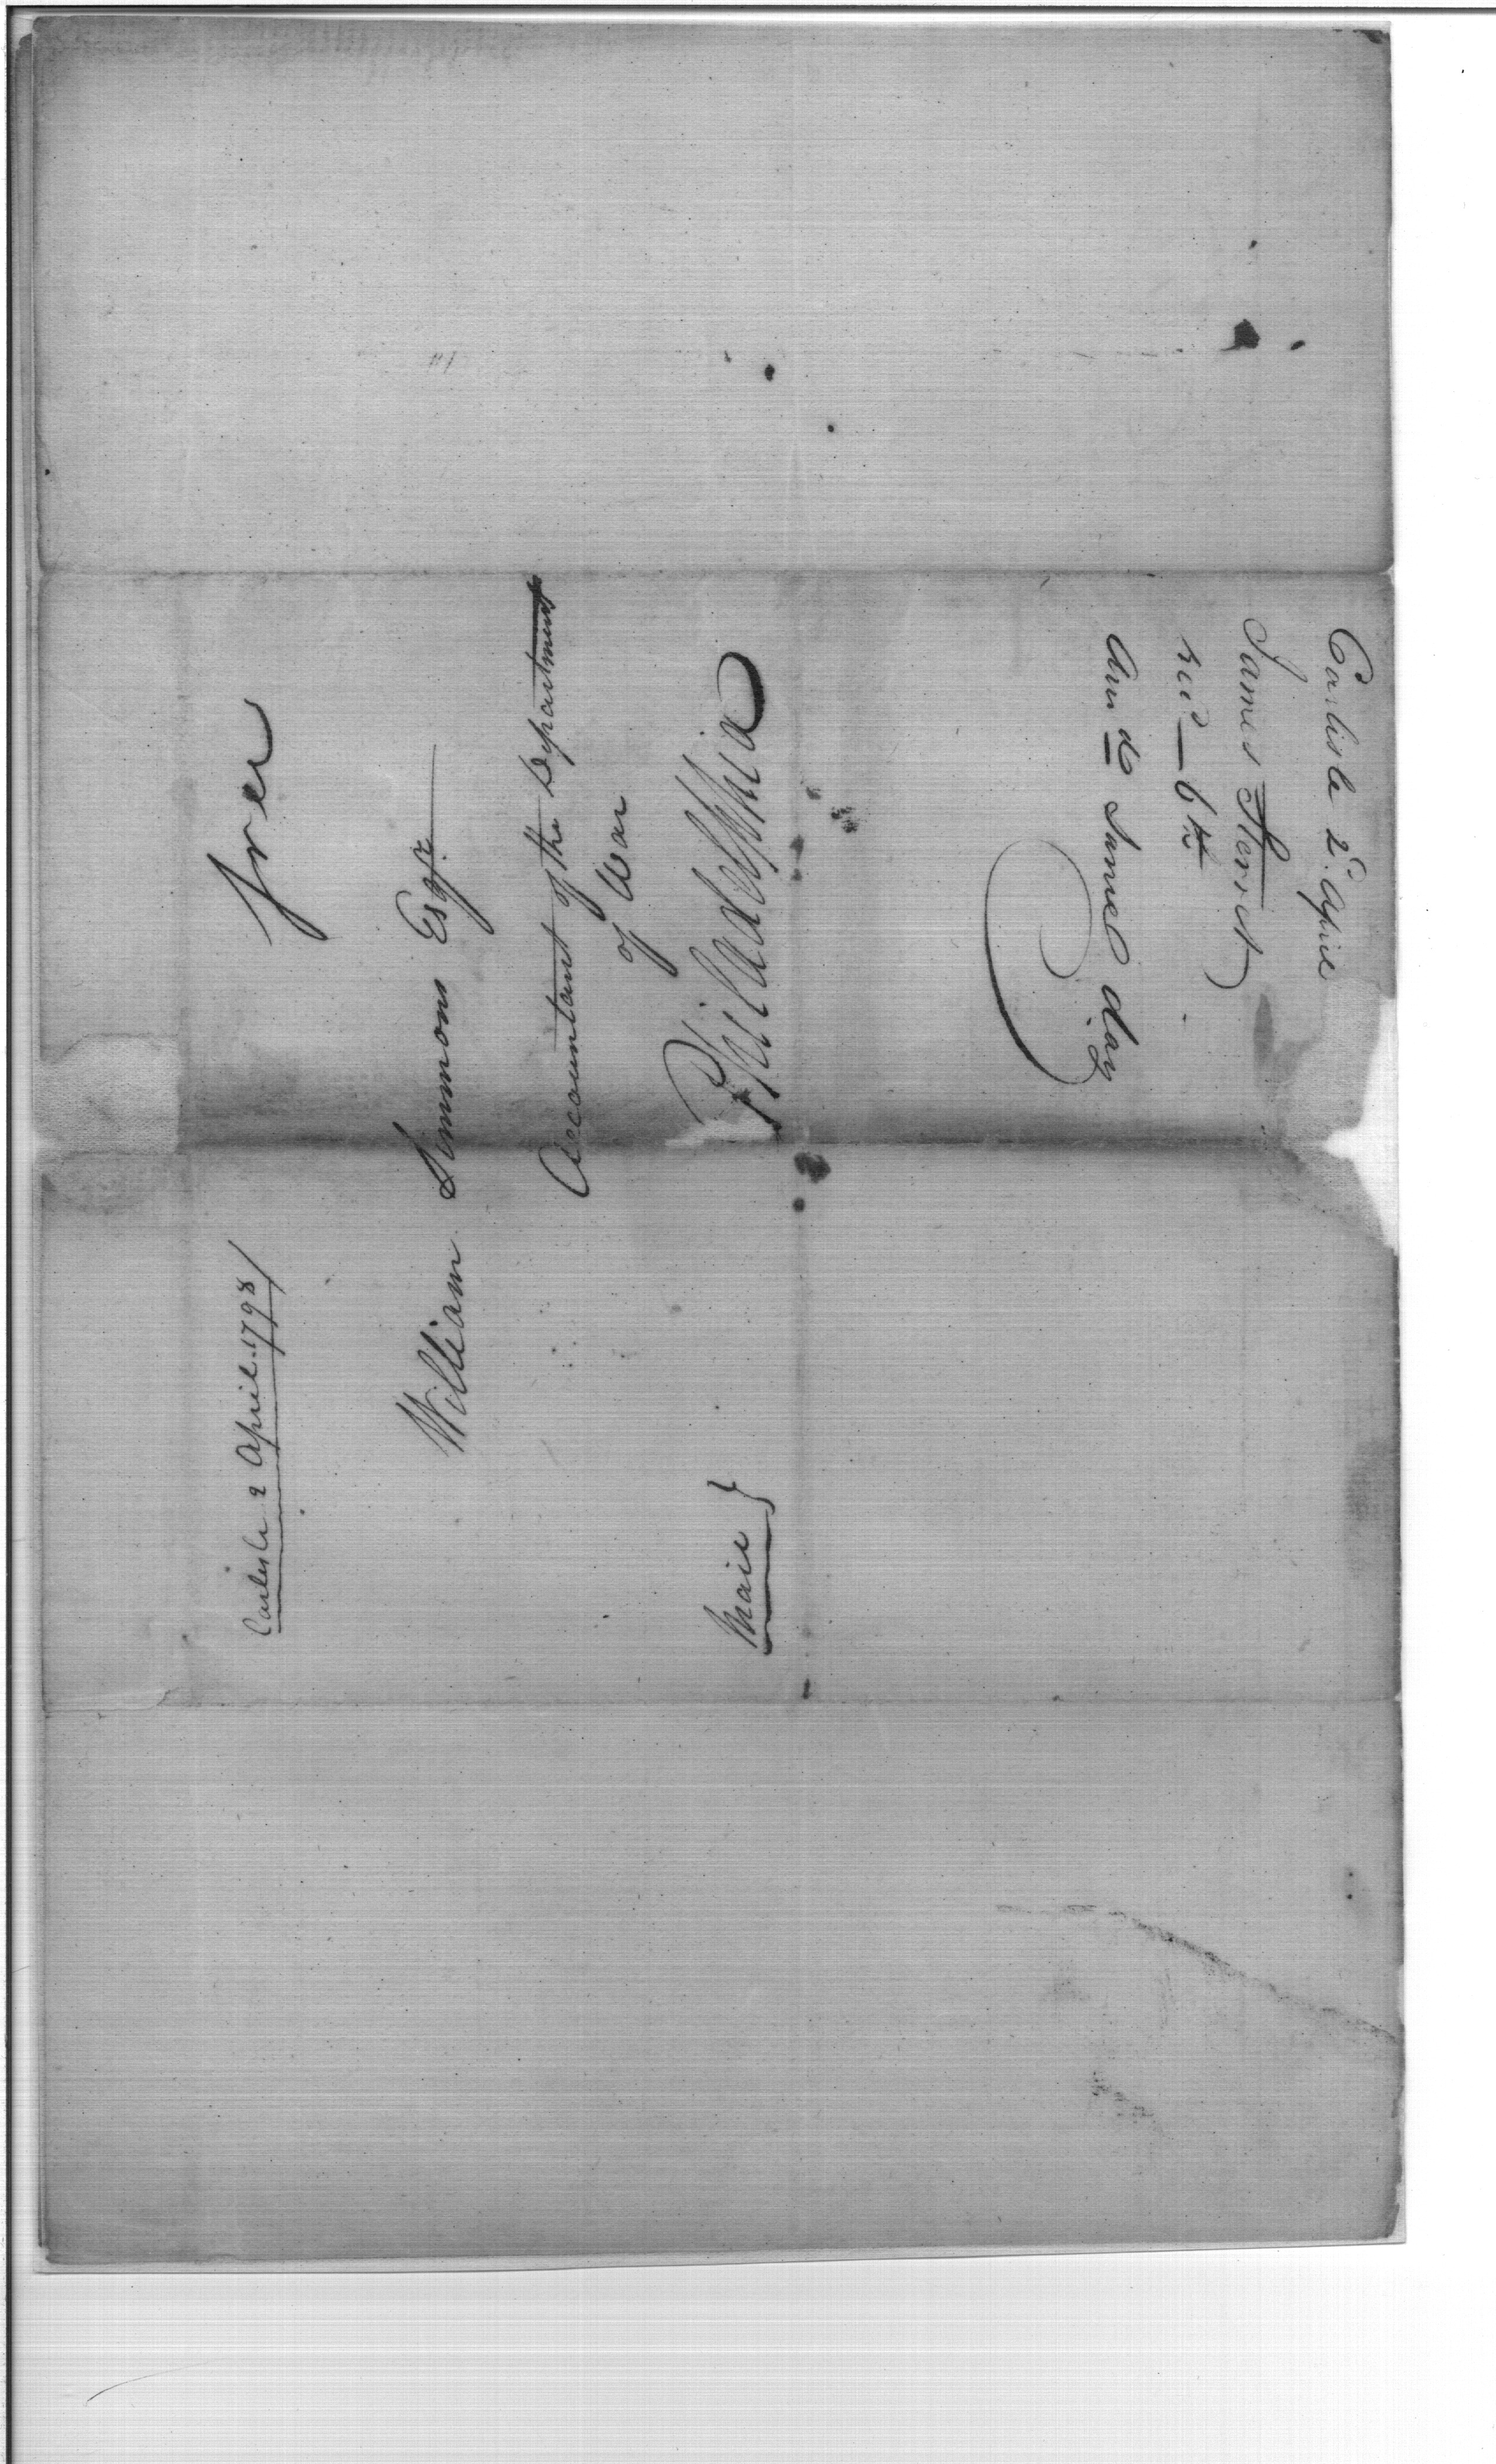 Carlisle 2 April 1798
free
William Simmons Esqr.
Accountant of the Department
of War
Philadelphia
Mail
Carlisle 2d. April
James Sterret
recd — 6th
Ansd Same day